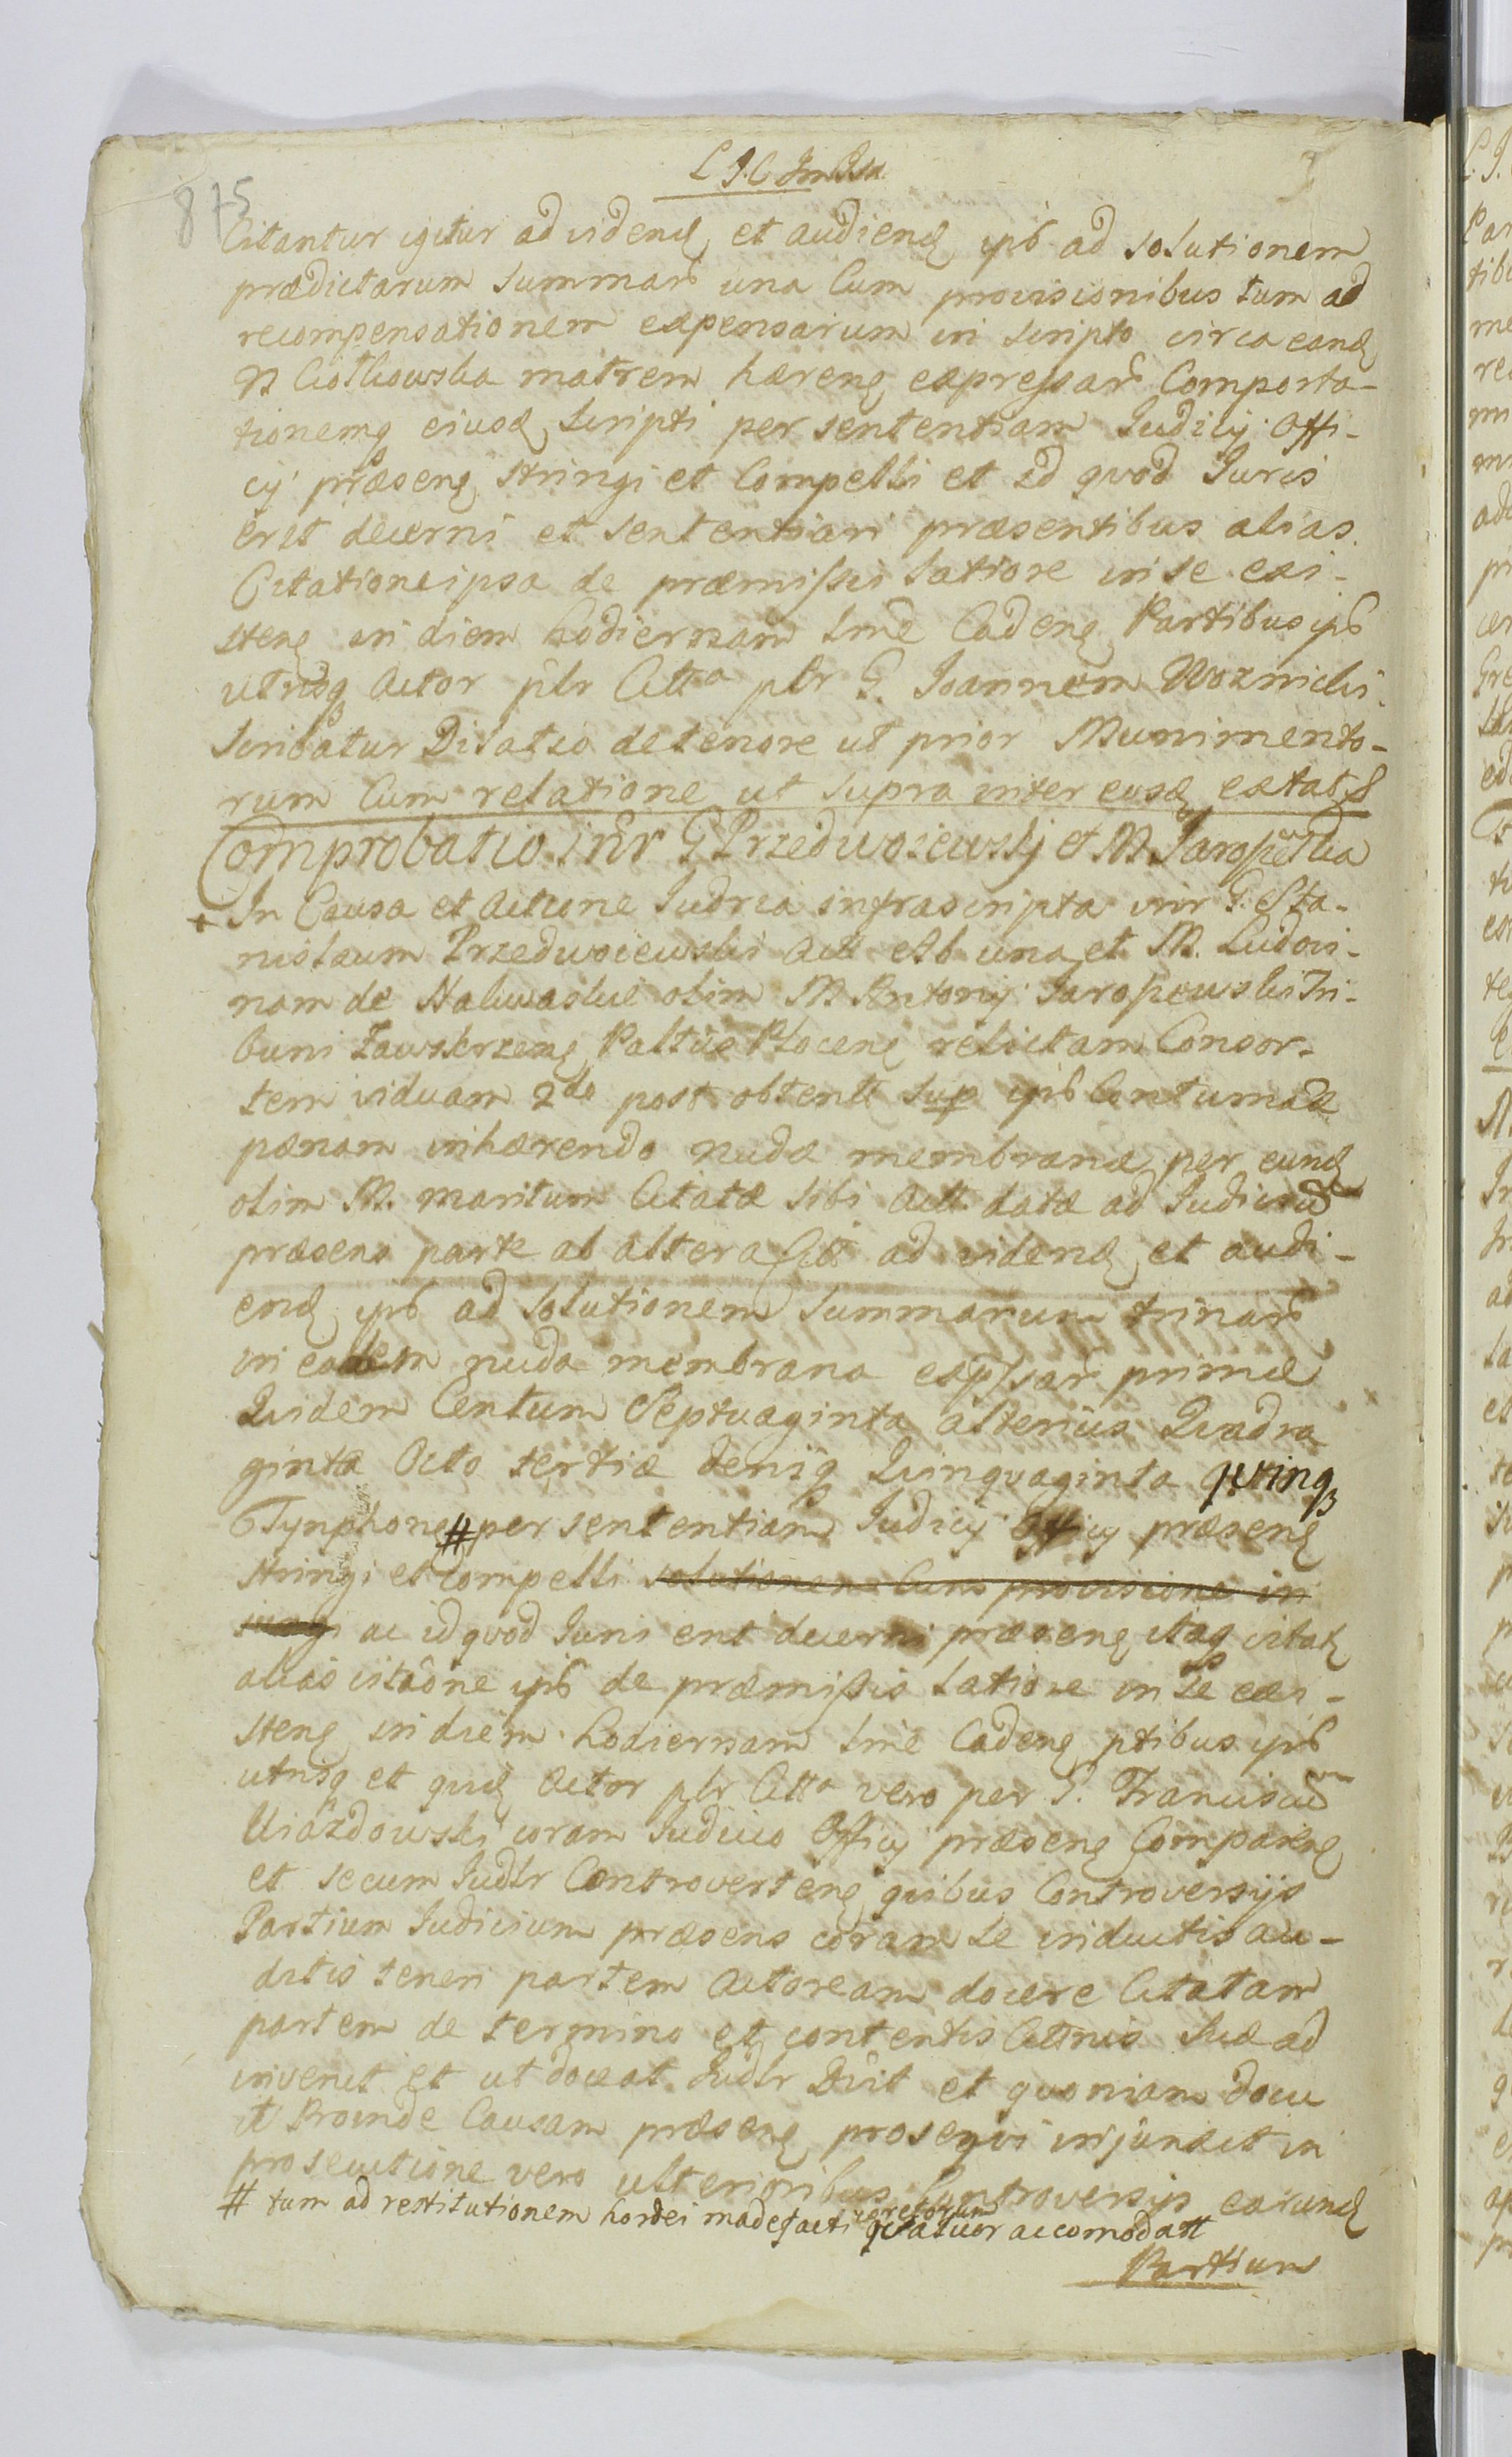 875
Citantur igitur ad vidend et audiend ipb ad solutionem
prædictarum summar una Cum provisionibus tum ad
recompensationem expensarum in scripto circa eand
M Ciołkowska matrem hæreng expressar Comporta-
tionemq eiusd scripti per sententiam Judicij Offi-
cij præseng stringi et Compelli et id quod Juris
erit decerni et sententiari præsentibus alias
Citatione ipsa de præmissis latiore in se exi-
steng in diem hodiernam sine Cadeng Partibus ipb
utrisq Actor plr Citta plr G. Joannem Woznicki
scribatur Dilatio de tenore ut prior Munimento-
rum Cum relatione ut supra inter eosd extat
Comprobatio intr G Przedwoiewskj et M
+ In Causa et Actione Judria infrascripta intr G. Sta-
nislaum Przedwoiewski Act Ab una et M. Ludovi-
nam de olim M Antonij Tri-
buni Zawskrzeng Paltûs Ploceng relictam Consor-
tem viduam 2do post obtent sup ipb Contumac
pænam inhærendo nudæ membranæ per eund
olim M. maritum Citatæ sibi Act. datæ ad Judiciu
præsens parte ab altera Citt ad vidend et audi-
end ipb ad solutionem summarum trinar
in eadem nuda membrana expssar primæ
Quidem Centum Septuaginta alterius Quadra
ginta Octo tertiæ deniq Quinquaginta quinq
Tynphone # per sententiam Judicij Officij præseng
stringi et Compelli solutionem Cum provisione in
iungi ac id quod Juris erit decerni præseng itaq citat
alias citâone ipb de præmissis latiore in se exi-
steng in diem hodiernam sine Cadeng ptibus ipb
utrisq et quid Actor plr Citta vero per G. Franciscum
Uiazdowski coram Judicio Officij præseng Compareng
et secum Judlr Controverteng quibus Controversijs
Partium Judicium præsens coram se inductis au-
ditis teneri partem Actoream docere Citatam
partem de termino et contentis Cittnis suæ ad
invenit et ut doceat Judlr Dixit et quoniam docu
it Proinde Causam præseng prosequi injunxit in
prosecutione vero ulterioribus Controversijs earund
# tum ad restitutionem hordei madefacti coretorum quatuor accomodatt
Partium